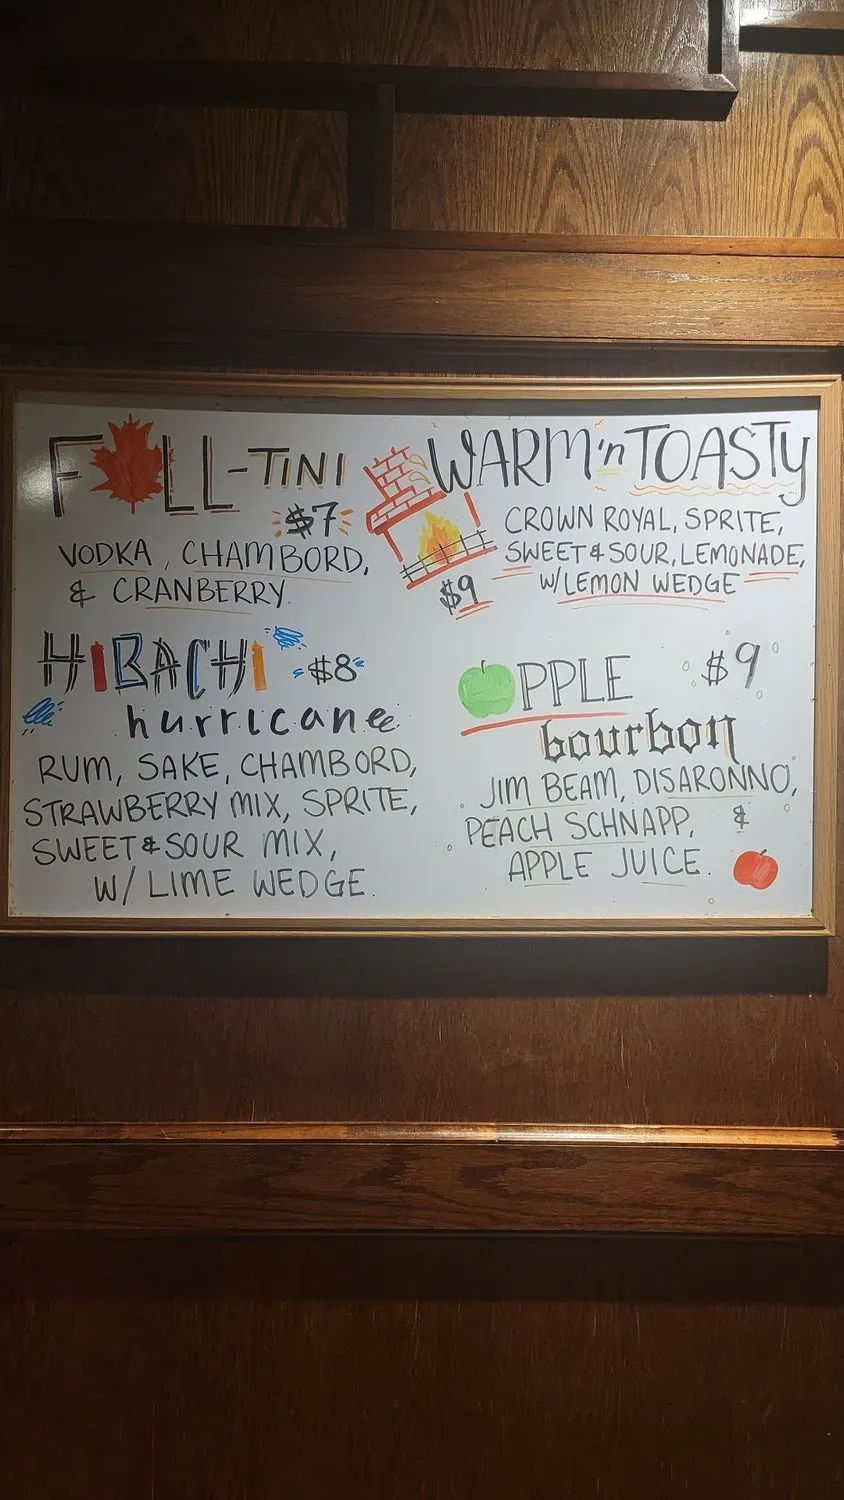 FALL-TINI
$7
VODKA, CHAMBORD,
& CRANBERRY.
WARM 'n TOASTY
CROWN ROYAL, SPRITE,
SWEET & SOUR, LEMONADE,
W/LEMON WEDGE
$9
HIBACHI $8
hurricane
RUM, SAKE, CHAMBORD,
STRAWBERRY MIX, SPRITE,
SWEET & SOUR MIX,
W/ LIME WEDGE.
APPLE $9
bourbon
JIM BEAM, DISARONNO,
PEACH SCHNAPP, &
APPLE JUICE.